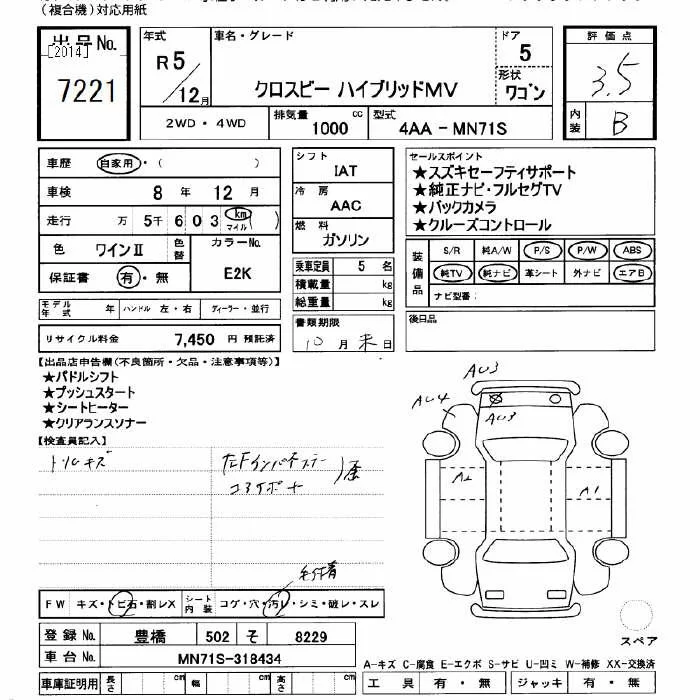 (複合機)対応用紙
出品No.
[2014]
7221
年式
R5/12月
車名・グレード
クロスビー ハイブリッドMV
ドア
5
形状
ワゴン
2WD・4WD
排気量
1000 cc
型式
4AA - MN71S
評価点
3.5
内装
B
車歴 自家用・( )
車検 8 年 12 月
走行 万 5千 6 0 3 (km マイル)
色 ワインⅡ 色替
カラーNo.
E2K
保証書 有・無
シフト
IAT
冷房
AAC
燃料
ガソリン
乗車定員 5 名
積載量 kg
総重量 kg
セールスポイント
★スズキセーフティサポート
★純正ナビ・フルセグTV
★バックカメラ
★クルーズコントロール
装備品
S/R 純A/W P/S P/W ABS
純TV 純ナビ 革シート 外ナビ エアB
ナビ型番:
モデル年式 年 ハンドル 左・右 ディーラー・並行
リサイクル料金 7,450 円 預託済
書類期限
10月末日
後日品
【出品店申告欄(不良箇所・欠品・注意事項等)】
★パドルシフト
★プッシュスタート
★シートヒーター
★クリアランスソナー
【検査員記入】
トリムキズ
左Fインパネステー
コアサポート
AU3
AU4
AU3
A2
A1
FW キズ・トビ石・割レX
シート内装 コゲ・穴・汚レ・シミ・破レ・スレ
登録No. 豊橋 502 そ 8229
車台No. MN71S-318434
車庫証明用 長さ cm 幅 cm 高さ cm
スペア
A-キズ C-腐食 E-エクボ S-サビ U-凹ミ W-補修 XX-交換済
工具 有・無 ジャッキ 有・無